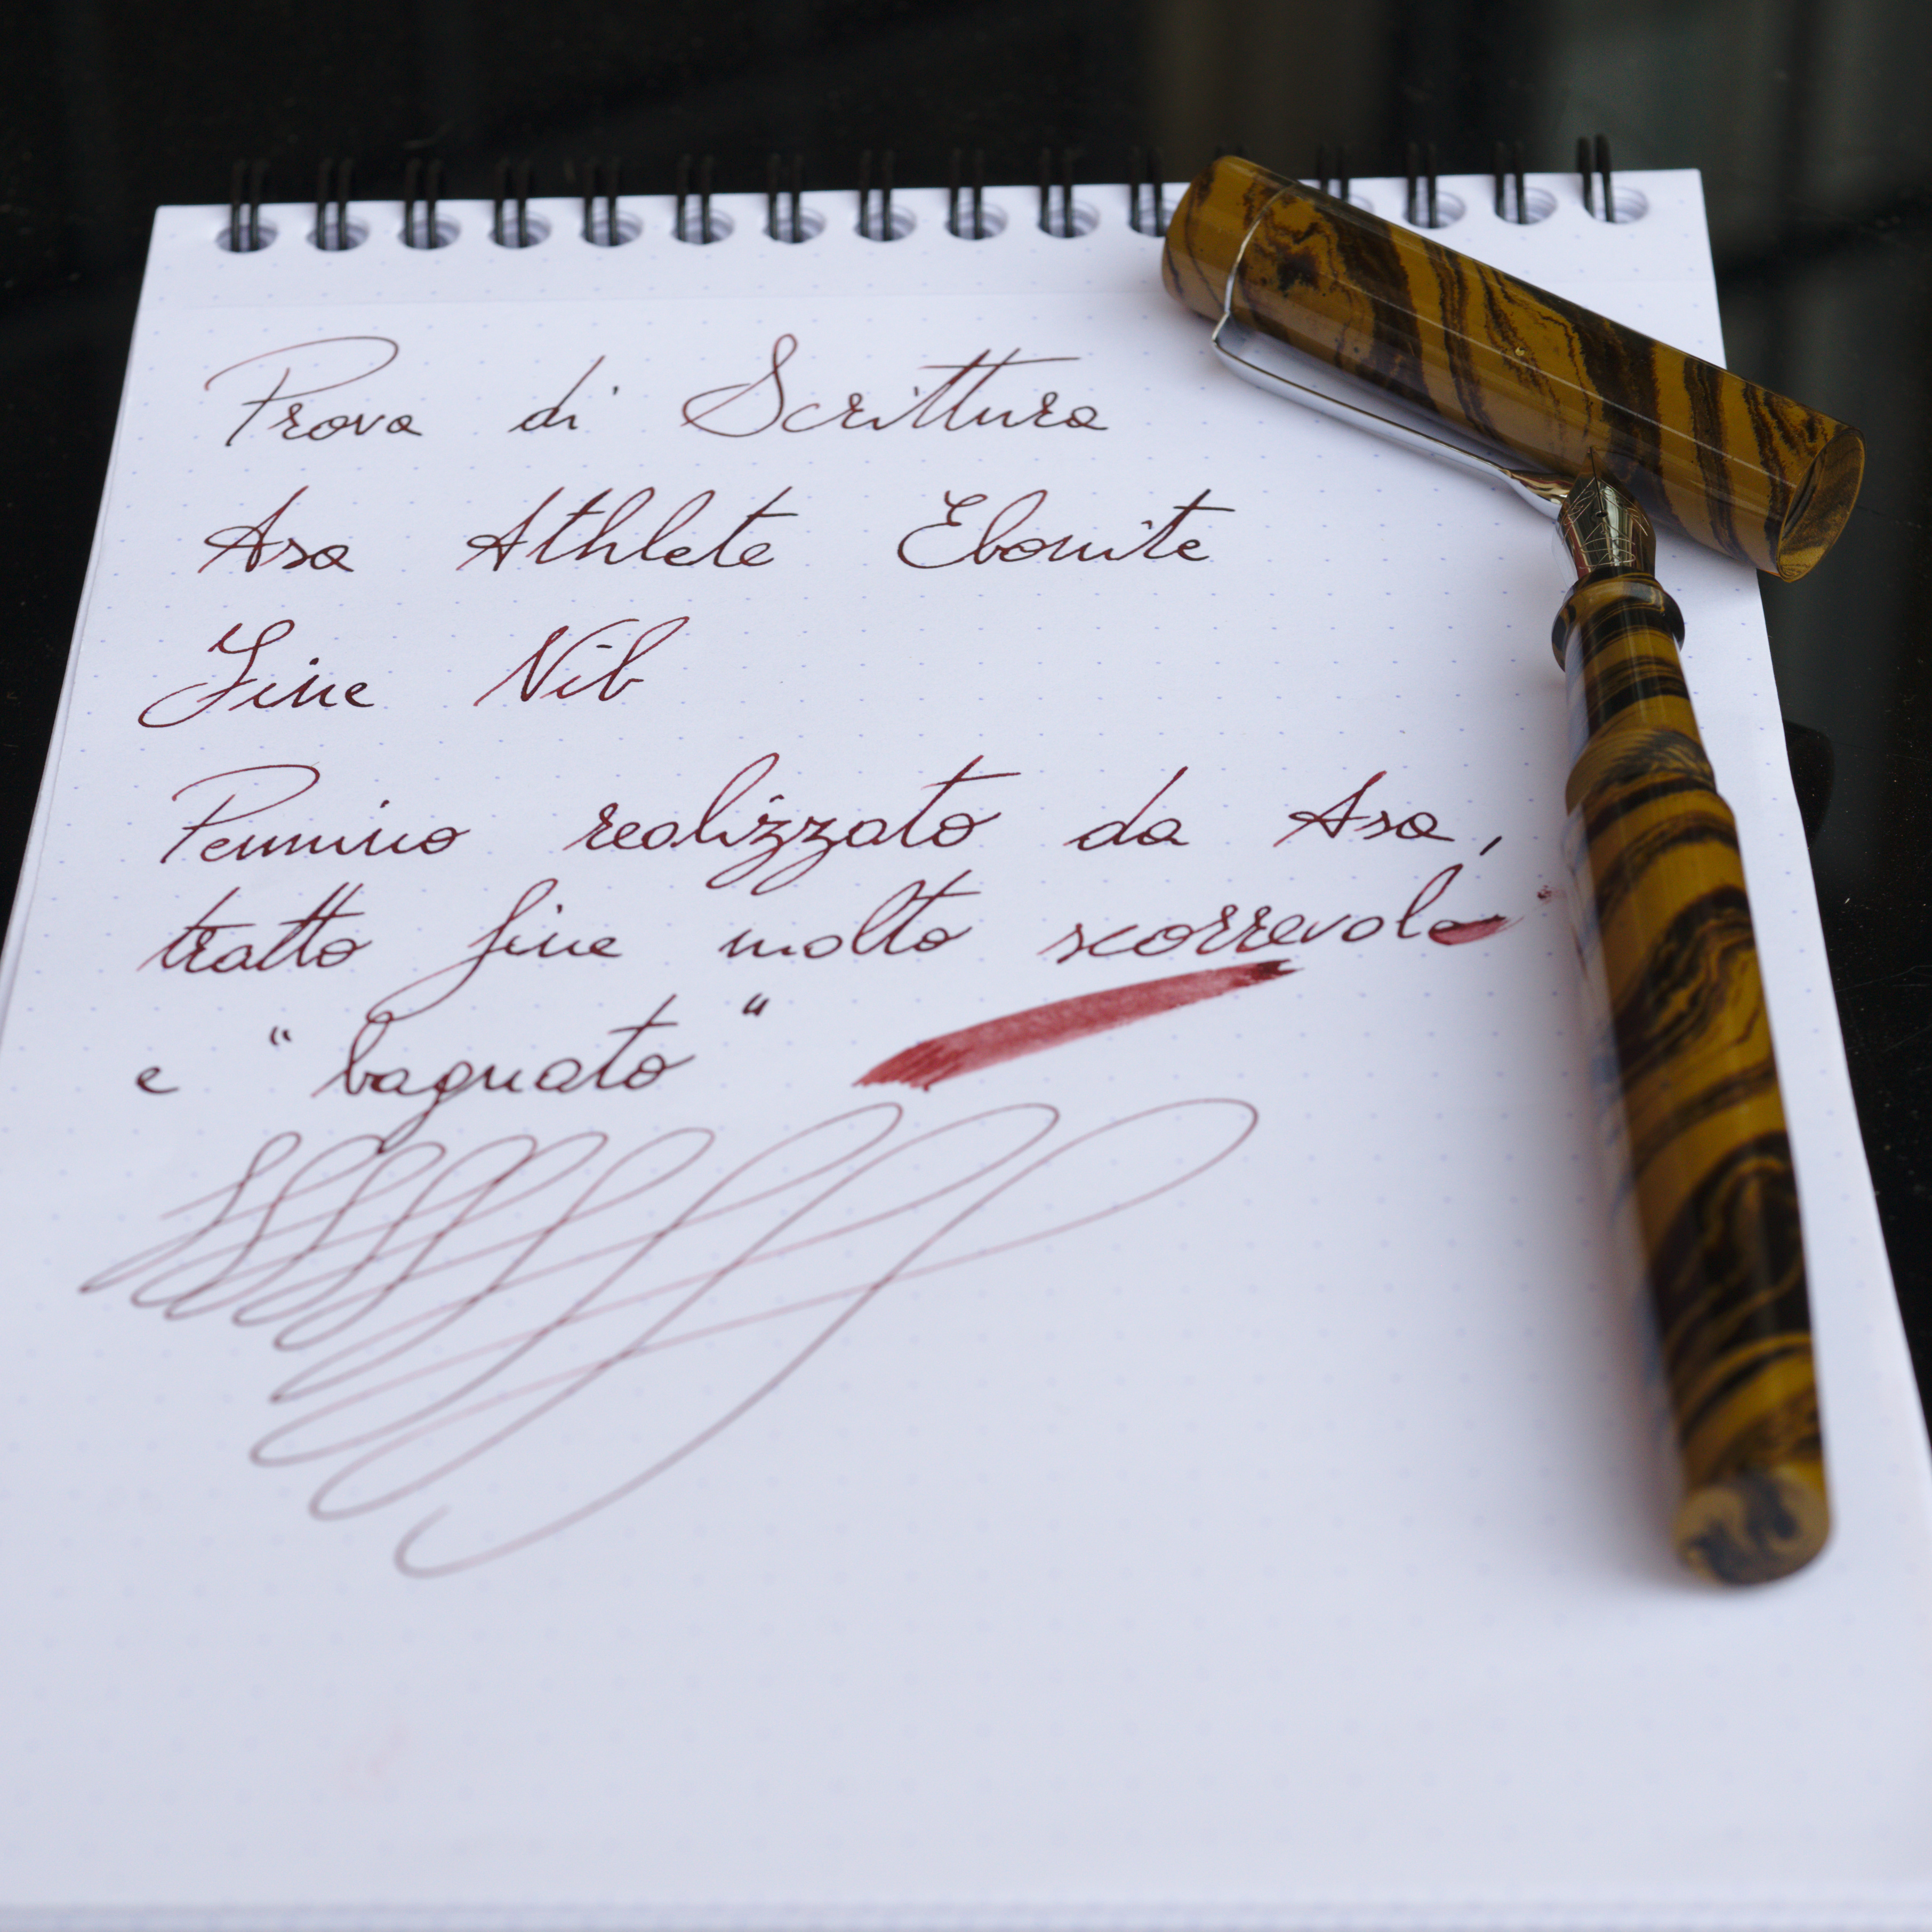 Prova di Scrittura
Asa Athlete Ebonite
Fine Nib
Pennino realizzato da Asa,
tratto fine molto scorrevole
e "bagnato"